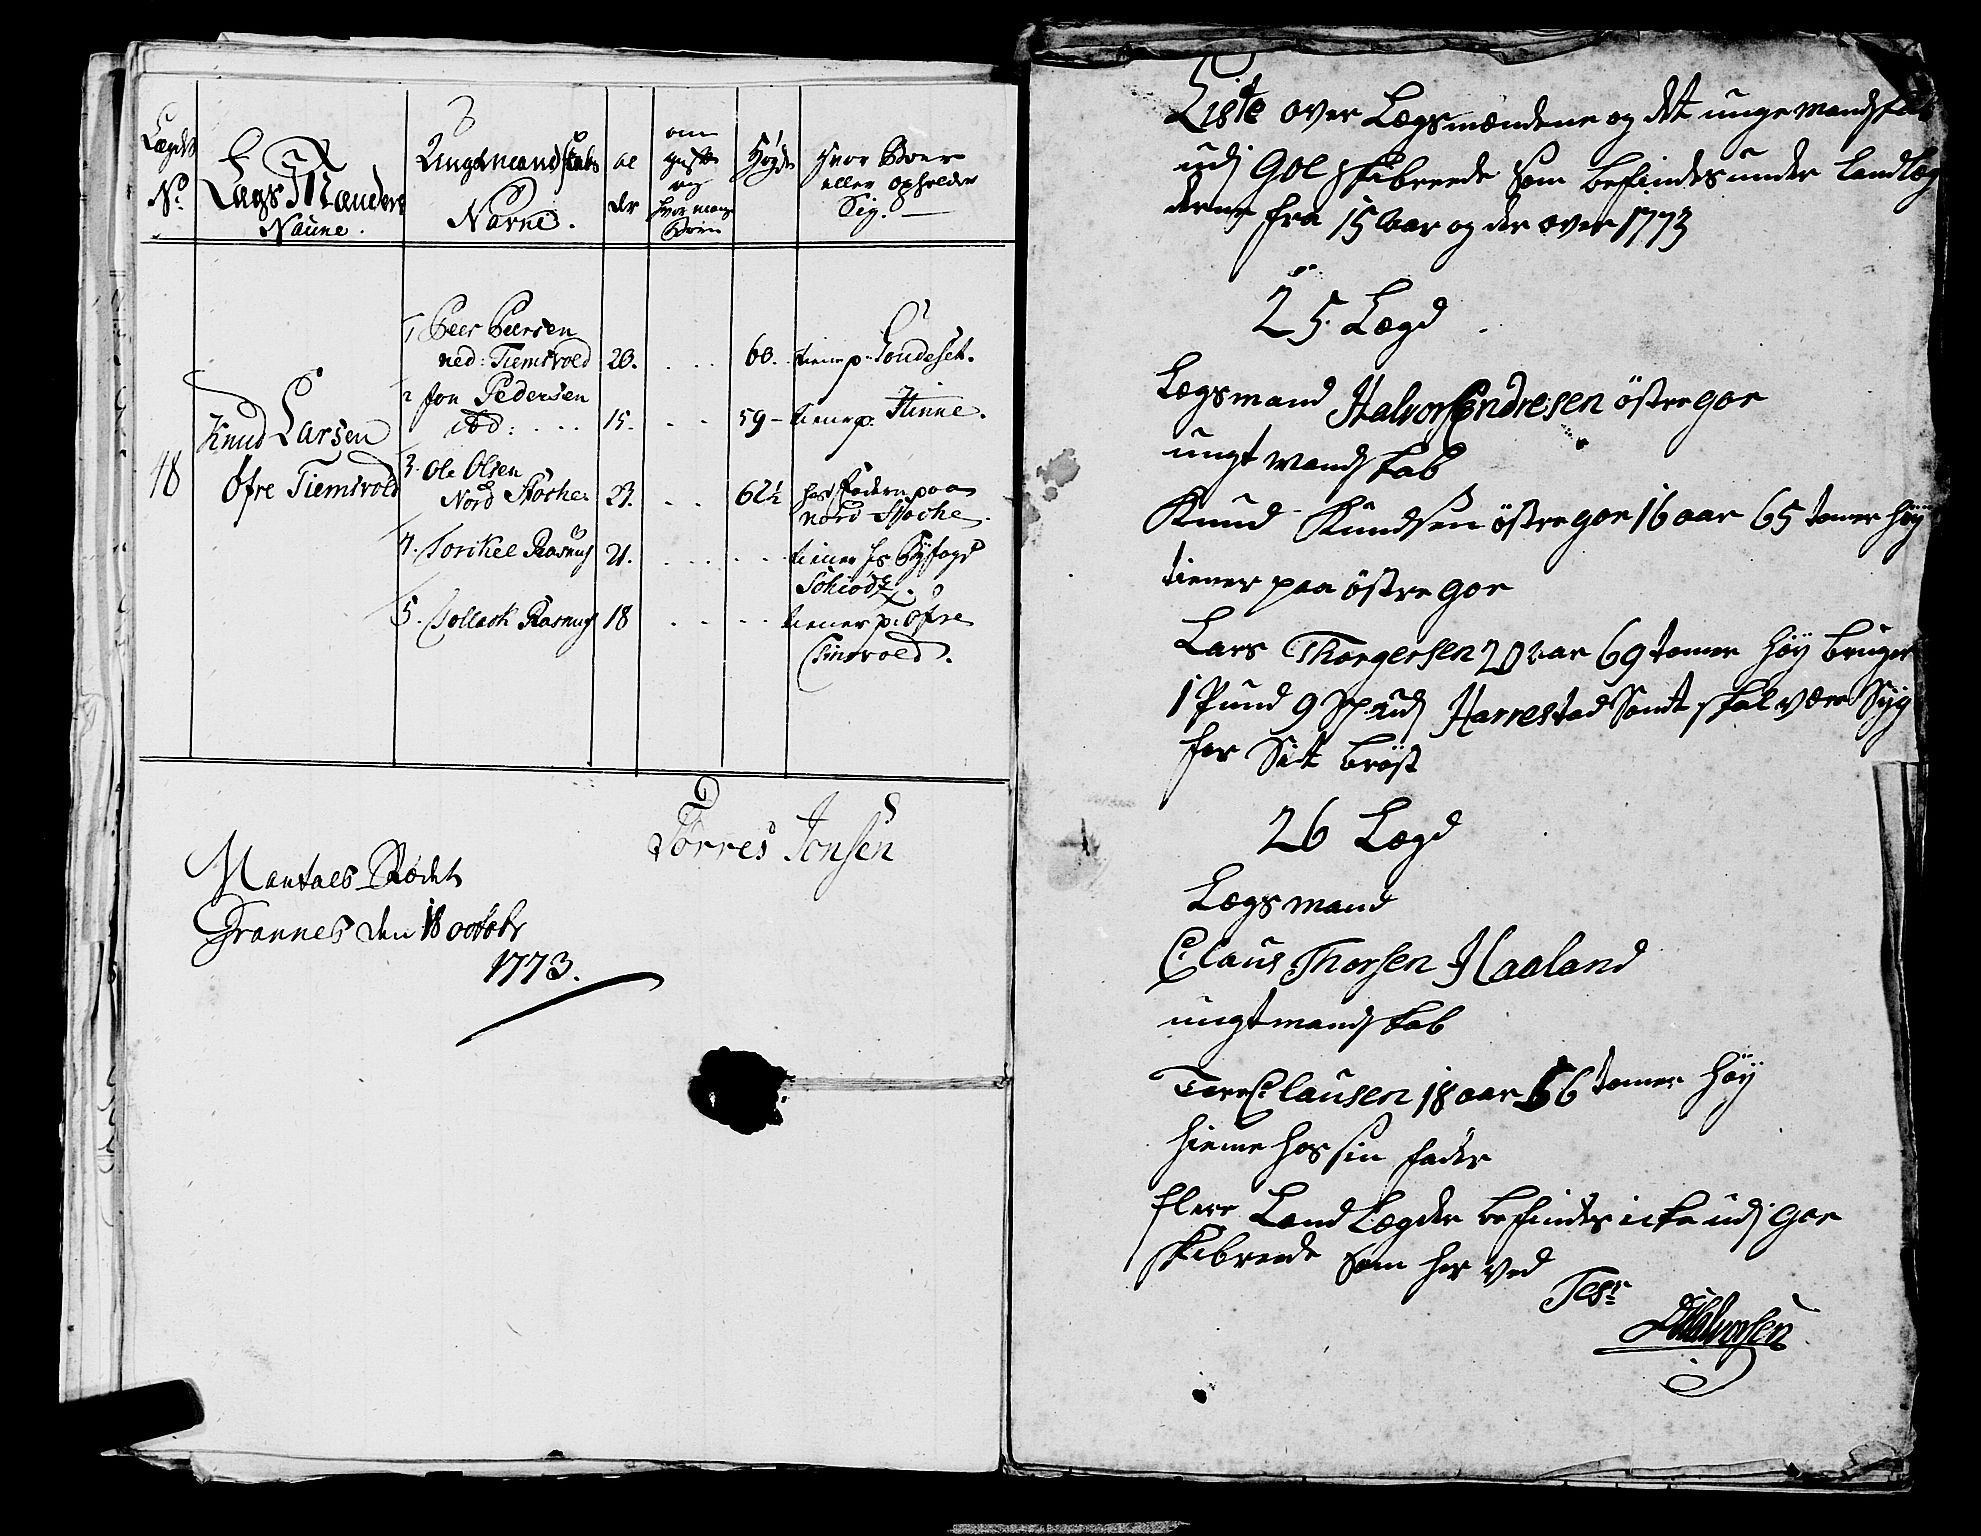 Lægds No.
Lægs Mændens Naune.
Ungt mandskabs Navne.
al der
om gift og hvor mange Börn
Høyde
hvor Boer eller opholder Sig.
18
Knud Larsen
Öfre Tiemsvold
1 Peer Peersen
ned: Tiemsvold 20. . . . 60. tiener p.
2 Jon Pedersen
ibd: . . . . 15. . . 59 – tiener p. Hinne.
3. Ole Olsen
Nord Stocke 23. . . 62½ hos Faderen paa
nord Stocke.
4. Torikel Rasmus 21. . . . . . . tiener hs Byfogd
Schiodz.
5. Tollach Rasmus 18 . . . . . tiener p. Öfre
Timsvold.
Torres Jonsen
Mantals Rödet
Grannes den 18 octobr
1773.
Liste over Lægsmændene og det unge mandskab
udj Goe skibreede Som befindes under Landlæg
derne fra 15 Aar og der over 1773
25. Lægd
Lægsmand Halvor Endresen östre goe
ungt mandskab
Knud Knudsen östre goe 16 aar 65 tomer høy
tiener paa östre goe
Lars Thorgersen 20 aar 69 tomer høy bruger
1 Pund 9 Sp. udj Harrestad Samt skal være Syg
for Sit bröst
26 Lægd
Lægsmand
Claus Thorsen Haaland
ungt mandskab
Tore Clausen 18 aar 56 tomer høy
hieme hos sin fader
flere Land Lægder befindes icke udj goe
skibreede Som her ved
Test:
DHalvorsen